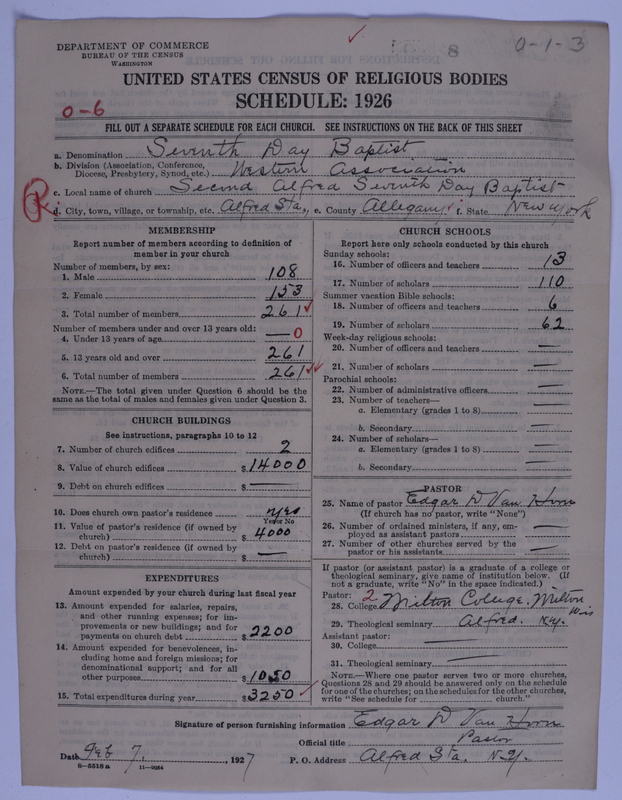 8
0-1-3
DEPARTMENT OF COMMERCE
BUREAU OF THE CENSUS
WASHINGTON
UNITED STATES CENSUS OF RELIGIOUS BODIES
SCHEDULE: 1926
0-6
FILL OUT A SEPARATE SCHEDULE FOR EACH CHURCH. SEE INSTRUCTIONS ON THE BACK OF THIS SHEET
a. Denomination Seventh Day Baptist
b. Division (Association, Conference, Diocese, Presbytery, Synod, etc.) Western Association
c. Local name of church Second Alfred Seventh Day Baptist
R
d. City, town, village, or township, etc. Alfred Sta., e. County Allegany f. State New York
MEMBERSHIP
Report number of members according to definition of
member in your church
Number of members, by sex:
1. Male 108
2. Female 153
3. Total number of members 261
Number of members under and over 13 years old:
4. Under 13 years of age — 0
5. 13 years old and over 261
6. Total number of members 261
NOTE.—The total given under Question 6 should be
same as the total of males and females given under Question 3.
CHURCH BUILDINGS
See instructions, paragraphs 10 to 12
7. Number of church edifices 2
8. Value of church edifices $14000
9. Debt on church edifices $—
10. Does church own pastor's residence yes
Yes or No
11. Value of pastor's residence (if owned by
church) $4000
12. Debt on pastor's residence (if owned by
church) $—
EXPENDITURES
Amount expended by your church during last fiscal year
13. Amount expended for salaries, repairs,
and other running expenses; for im-
provements or new buildings; and for
payments on church debt $2200
14. Amount expended for benevolences, in-
cluding home and foreign missions; for
denominational support; and for all
other purposes $1050
15. Total expenditures during year $3250
CHURCH SCHOOLS
Report here only schools conducted by this church
Sunday schools:
16. Number of officers and teachers 13
17. Number of scholars 110
Summer vacation Bible schools:
18. Number of officers and teachers 6
19. Number of scholars 62
Week-day religious schools:
20. Number of officers and teachers —
21. Number of scholars —
Parochial schools:
22. Number of administrative officers —
23. Number of teachers—
a. Elementary (grades 1 to 8) —
b. Secondary —
24. Number of scholars—
a. Elementary (grades 1 to 8) —
b. Secondary —
PASTOR
25. Name of pastor Edgar D Van Horn
(If church has no pastor, write "None")
26. Number of ordained ministers, if any, em-
ployed as assistant pastors —
27. Number of other churches served by the
pastor or his assistants —
If pastor (or assistant pastor) is a graduate of a college or
theological seminary, give name of institution below. (If
not a graduate, write "No" in the space indicated.)
Pastor: 2
28. College Milton College. Milton Wis
29. Theological seminary Alfred. N.Y.
Assistant pastor:
30. College —
31. Theological seminary —
NOTE.—Where one pastor serves two or more churches,
Questions 28 and 29 should be answered only on the schedule
for one of the churches; on the schedules for the other churches,
write "See schedule for church."
Signature of person furnishing information Edgar D Van Horn
Official title Pastor
Date Feb 7, 1927 P. O. Address Alfred Sta. N.Y.
8—5518 a 11—9954